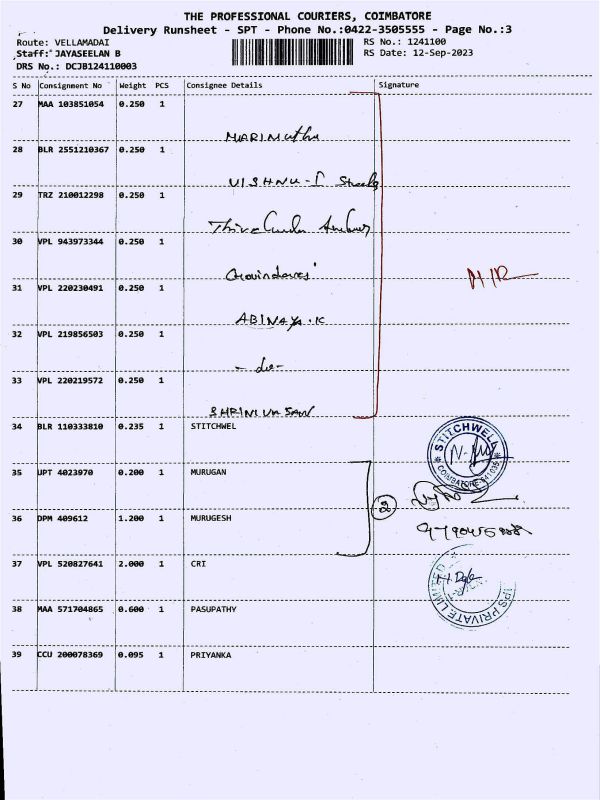 THE PROFESSIONAL COURIERS, COIMBATORE
Delivery Runsheet - SPT - Phone No.:0422-3505555 - Page No.:3
Route: VELLAMADAI RS No.: 1241100
Staff: JAYASEELAN B RS Date: 12-Sep-2023
DRS No.: DCJB124110003
S No Consignment No Weight PCS Consignee Details Signature
27 MAA 103851054 0.250 1
MARIMuthu
28 BLR 2551210367 0.250 1
VISHNU-I
29 TRZ 210012298 0.250 1
30 VPL 943973344 0.250 1
31 VPL 220230491 0.250 1
ABINAYA.K
32 VPL 219856503 0.250 1
-do-
33 VPL 220219572 0.250 1
34 BLR 110333810 0.235 1 STITCHWEL
STITCHWELL
COIMBATORE
35 UPT 4023970 0.200 1 MURUGAN
2
36 DPM 409612 1.200 1 MURUGESH
37 VPL 520827641 2.000 1 CRI
38 MAA 571704865 0.600 1 PASUPATHY
PRIVATE LIMITED
39 CCU 200078369 0.095 1 PRIYANKA